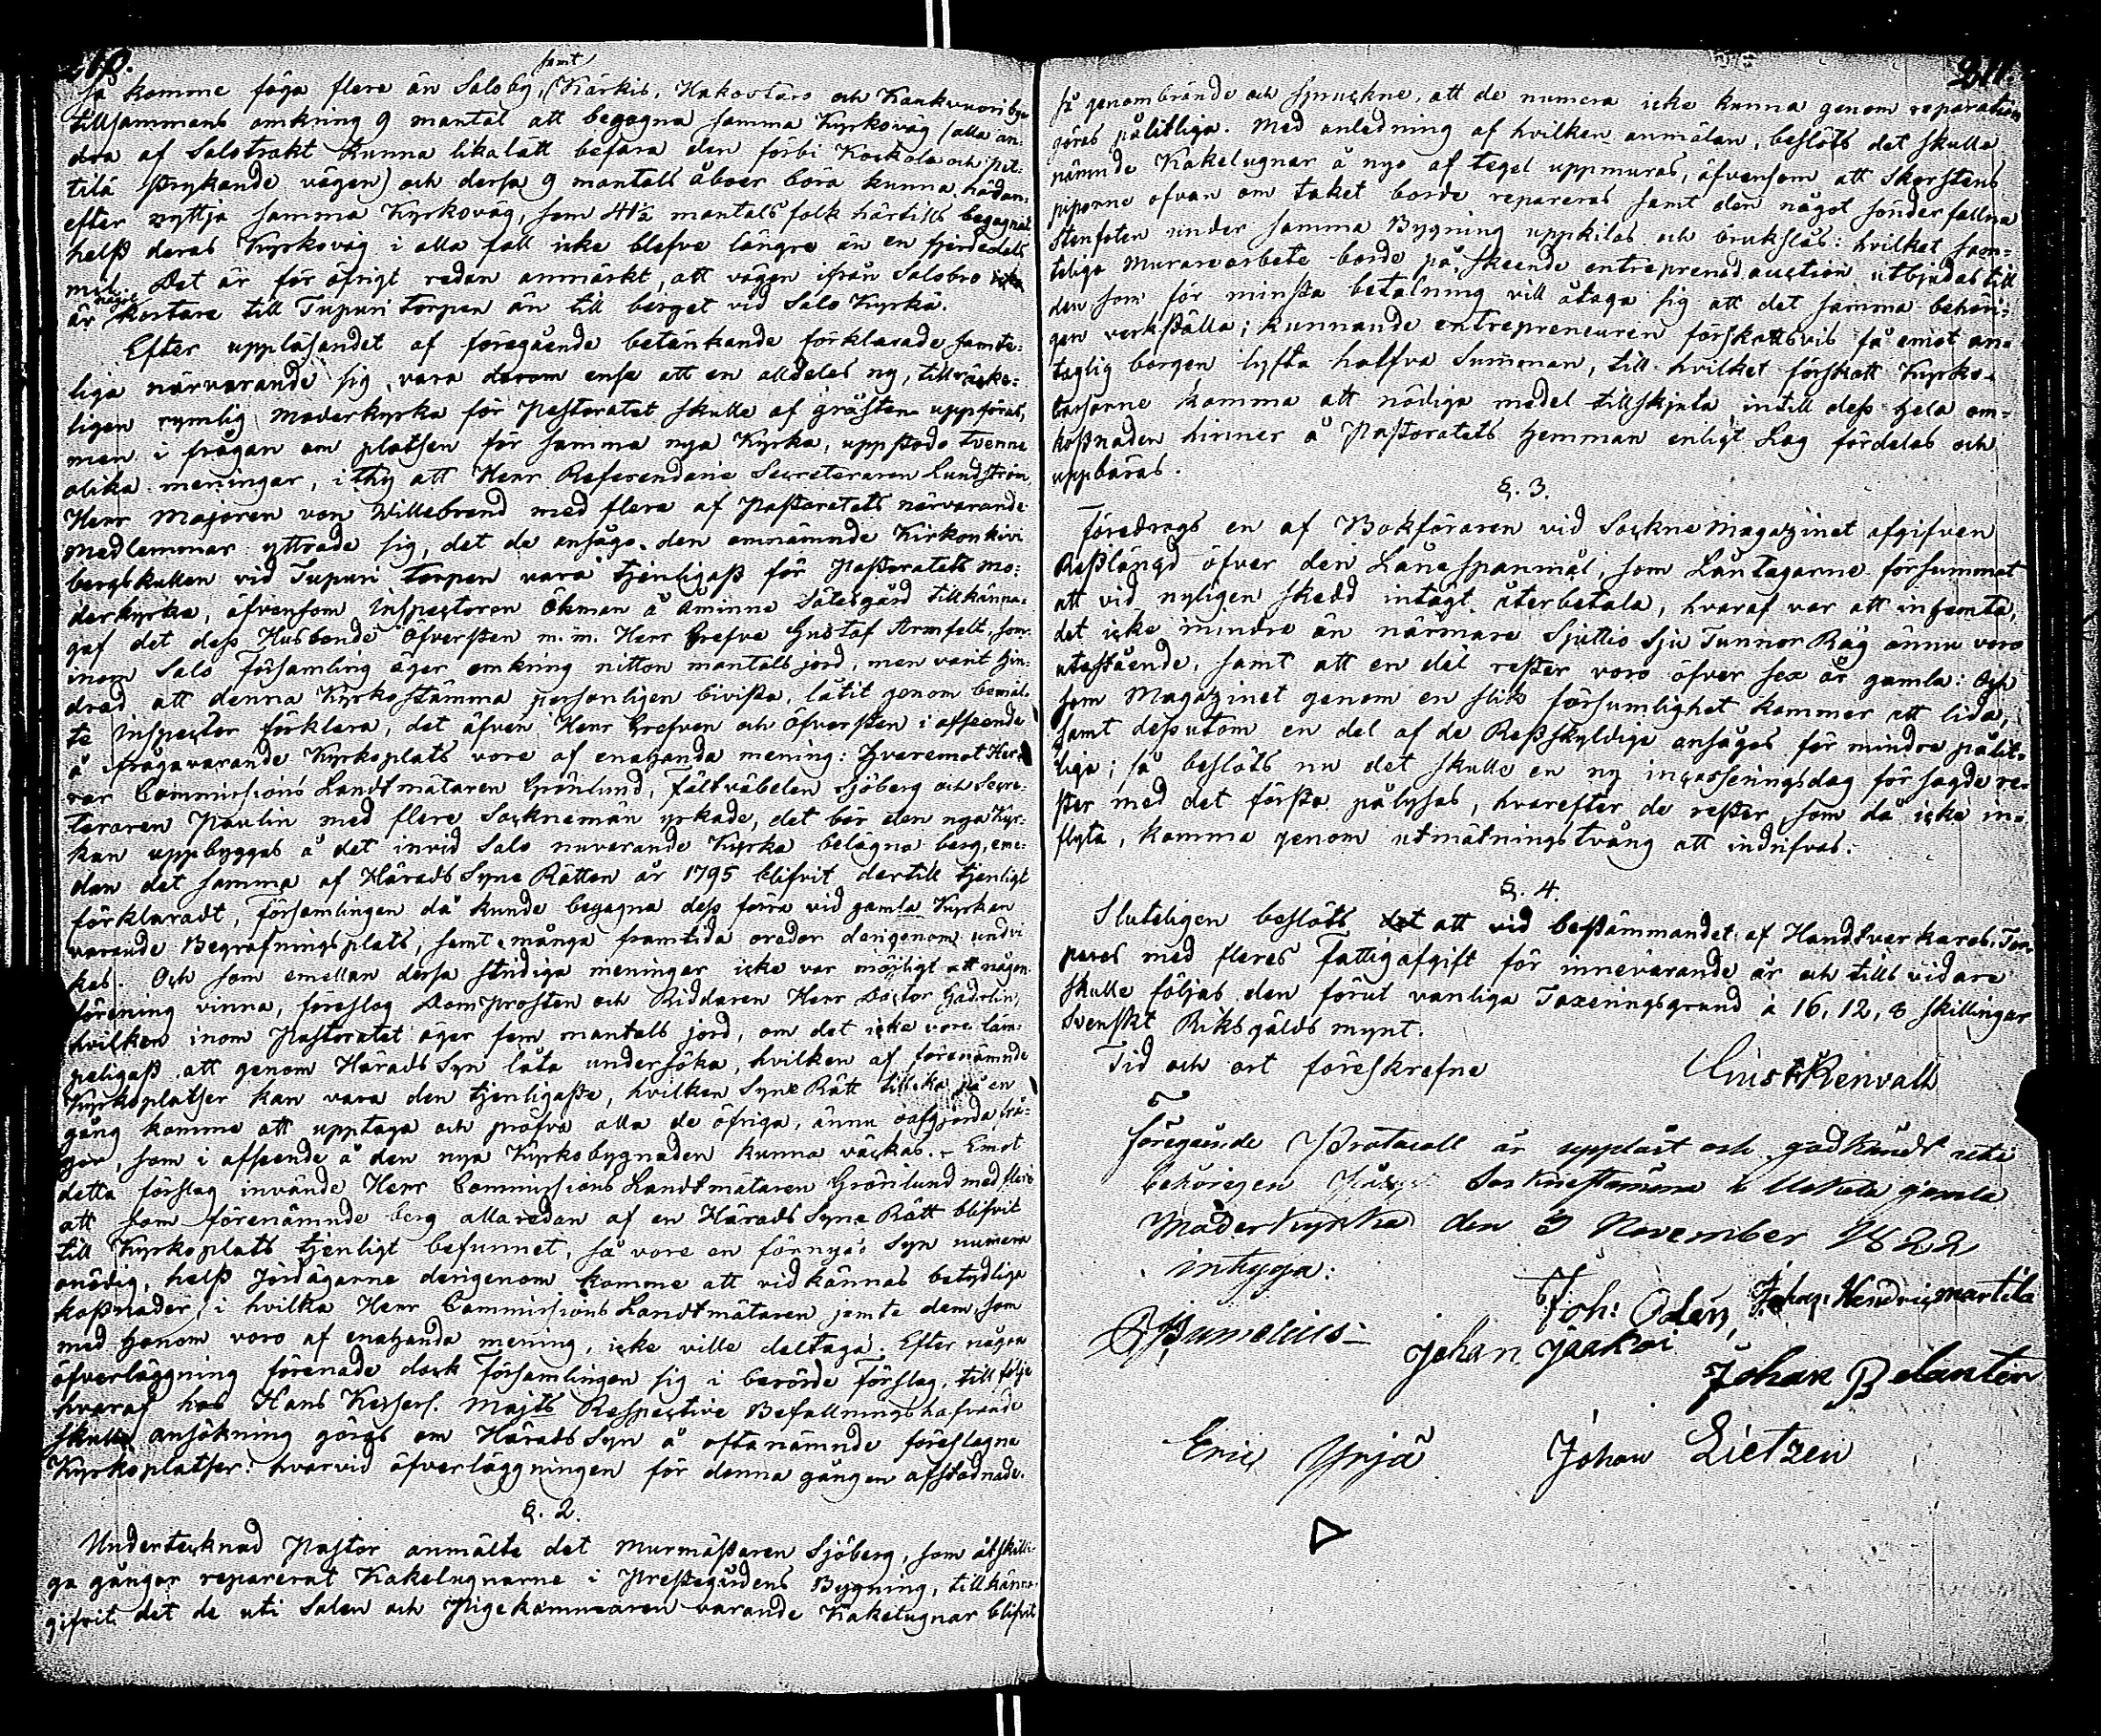 210.
så komme föga flera än Salo by, samt Kärkis, Hakostaro och Kaukvuori byar
tillsammans omkring 9 mantal att begagna samma Kyrkoväg (alla an-
dra af Salotrakt kunna likalätt befara den förbi Kaskola och pet-
tilä strykande vägen) och dessa 9 mantals åboer böra kunna hädan-
efter nyttja samma Kyrkoväg, som 41½ mantals folk härtills begagnat
helst deras Kyrkoväg i alla fall icke blefve längre än en fjerdedels
mil. Det är för öfrigt redan anmärkt, att vägen ifrån Salobro
är något kortare till Tupuri torpen än till berget vid Salo Kyrka.
Efter uppläsandet af föregående betänkande förklarade samte-
liga närvarande sig, vara derom ense att en alldeles ny, tillräcke-
ligen rymlig moderkyrka för Pastoratet skulle af gråsten uppföras,
men i frågan om platsen för samma nya Kyrka, uppstodo tvenne
olika meningar, i thy att Herr Referendarie Secreteraren Lundström,
Herr Majoren von Willebrand med flera af Pastoratets närvarande
medlemmar yttrade sig, det de ansågo den omnämnde Kirkonkivi
bergskullen vid Tupuri torpen vara tjenligast för Pastoratets mo-
derkyrka, äfvensom Inspectoren Ekman å Åminne Sätesgård tillkänna-
gaf det dess Husbonde Öfversten m. m. Herr Grefve Gustaf Armfelt, som
inom Salo Församling äger omkring nitton mantals jord, men varit hin-
drad att denna Kyrkostämma personligen bivista, låtit genom bemäl-
te Inspector förklara, det äfven Herr Grefven och Öfversten i afseende
å ifrågavarande Kyrkoplats vore af enahanda mening: Hvaremot Her-
rar Commissions Landtmätaren Grönlund, Fältväbelen Sjöberg och Secre-
teraren Paulin med flere Sockneman yrkade, det bör den nya Kyr-
kan uppbyggas å det invid Salo nuvarande Kyrka belägna berg, eme-
dan det samma af Härads Syne Rätten år 1795 blifvit dertill tjenligt
förklaradt, Församlingen då kunde begagna dess förra vid gamla Kyrkan
varande Begrafningsplats, samt många framtida oredor derigenom undvi-
kas. Och som emellan dessa stridiga meningar icke var möjligt att någon
förening vinna, föreslog Domprosten och Riddaren Herr Doctor Gadolin,
hvilken inom Pastoratet äger fem mantals jord, om det icke vore läm-
peligast att genom Härads Syn låta undersöka, hvilken af förenämnde
Kyrkoplatser kan vara den tjenligaste, hvilken Syne Rätt tillika på en
gång komme att upptaga och pröfva alla de öfriga, ännu oafgjorda frå-
gor, som i afseende å den nya Kyrkobygnaden kunna väckas. - Emot
detta förslag invände Herr Commissions Landtmätaren Grönlund med flere
att som förenämnde berg allaredan af en Härads Syne Rätt blifvit
till Kyrkoplats tjenligt befunnet, så vore en förnyad Syn numera
onödig, helst Jordägarne derigenom komme att vidkännas betydliga
kostnader, i hvilka Herr Commissions Landtmätaren jemte dem, som
med honom voro af enahanda mening, icke ville deltaga. Efter någon
öfverläggning förenade dock Församlingen sig i berörde Förslag, till följe
hvaraf hos Hans Kejserl. Majts Respective Befallningshafvande
skulle ansökning göras om Härads Syn å oftanämnde föreslagne
Kyrkoplatser: hvarvid öfverläggningen för denna gången afstadnade.
§. 2.
Undertecknad Pastor anmälte det Murmästaren Sjöberg, som åtskilli-
ga gångor reparerat Kakelugnarne i Prestegårdens Bygning, tillkänna-
gifvit det de uti Salen och Pigekammaren varande Kakelugnar blifvit
211.
så genombrände och spruckne, att de numera icke kunna genom reparation
göras pålitliga. Med anledning af hvilken anmälan, beslöts det skulle
nämnde Kakelugnar å nyo af tegel uppmuras, äfvensom att Skorstens
piporne ofvan om taket borde repareras samt den något sönderfallna
Stenfoten under samma Bygning uppkilas och brukslås: hvilket sam-
teliga Murarearbete borde på skeende entreprenad auction utbjudas till
den som för minsta betalning vill åtaga sig att det samma behöri-
gen verkställa; kunnande entrepreneuren förskottsvis få emot an-
taglig borgen lyfta halfva Summan, till hvilket förskott Kyrko-
kassorne komma att nödiga medel tillskjuta, intill dess hela om-
kostnaden hinner å Pastoratets hemman enligt Lag fördelas och
uppbäras.
§. 3.
Föredrogs en af Bokföraren vid Sockne Magazinet afgifven
Restlängd öfver den Lånespanmål, som Låntagarne försummat
att vid nyligen skedd intagt återbetala, hvaraf var att inhemta,
det icke mindre än närmare Sjuttio Sju Tunnor Råg ännu voro
utestående, samt att en del rester voro öfver sex år gamla: Och
som Magazinet genom en slik försumlighet kommer att lida,
samt dessutom en del af de Restskyldige ansågos för mindre pålit-
liga; så beslöts nu det skulle en ny incasseringsdag för sagde re-
ster med det första pålysas, hvarefter de rester, som då icke in-
flyta, komma genom utmätningstvång att indrifvas.
§. 4.
Sluteligen beslöts att vid bestämmandet af Handtverkares, Tor-
pares med fleres Fattigafgift för innevarande år och tills vidare
skulle följas den förut vanliga Taxeringsgrund à 16, 12, 8 skillingar
Svenskt Riksgälds mynt.
Tid och ort föreskrefne
Gust Renvall
Föregående Protocoll är uppläst och godkändt uti
behörigen Sockne Stämma i Uskela gamla
Moderkyrka den 3 November 1822
intyga:
Joh: Oden, Johan Hendricmartila
Johan Jaakoi
Johan Belantin
Eric Yrjä Johan Lietzen